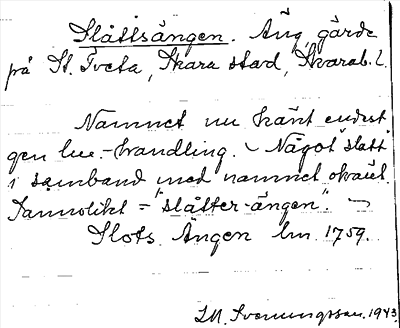 Slåttsängen. Äng, gärde
på St. Tveta, Skara stad, Skarab. l.
Namnet nu känt endast
gen lm.-handling. – Något "slått"
i samband med namnet okänt.
Sannolikt = "slåtter-ängen". –
Slots Ängen lm. 1759.
1943.